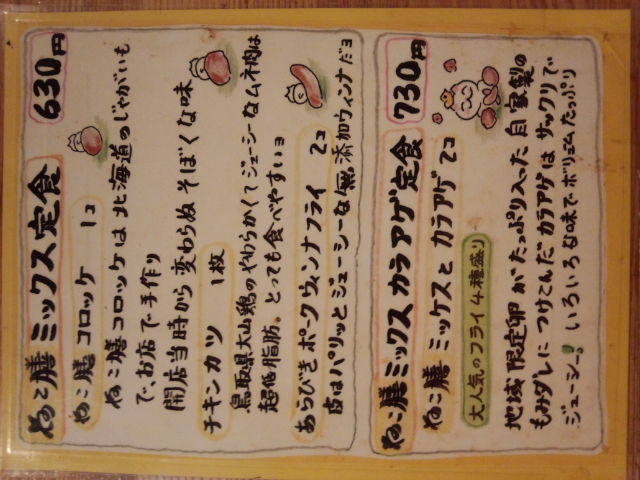 ねこ膳ミックス定食 630円
ねこ膳コロッケ 1コ
ねこ膳コロッケは北海道のじゃがいも
で、お店で手作り
開店当時から変わらぬそぼくな味
チキンカツ 1枚
鳥取県大山鶏のやわらかくてジューシーなムネ肉は
超低脂肪。とっても食べやすいョ
あらびきポークウィンナフライ 2コ
皮はパリッとジューシーな無添加ウィンナだョ
ねこ膳ミックスカラアゲ定食 730円
ねこ膳ミックスとカラアゲ2コ
大人気のフライ4種盛り
地域限定卵がたっぷり入った自家製の
もみダレにつけこんだカラアゲはサックリで
ジューシー!いろいろな味でボリュームたっぷり